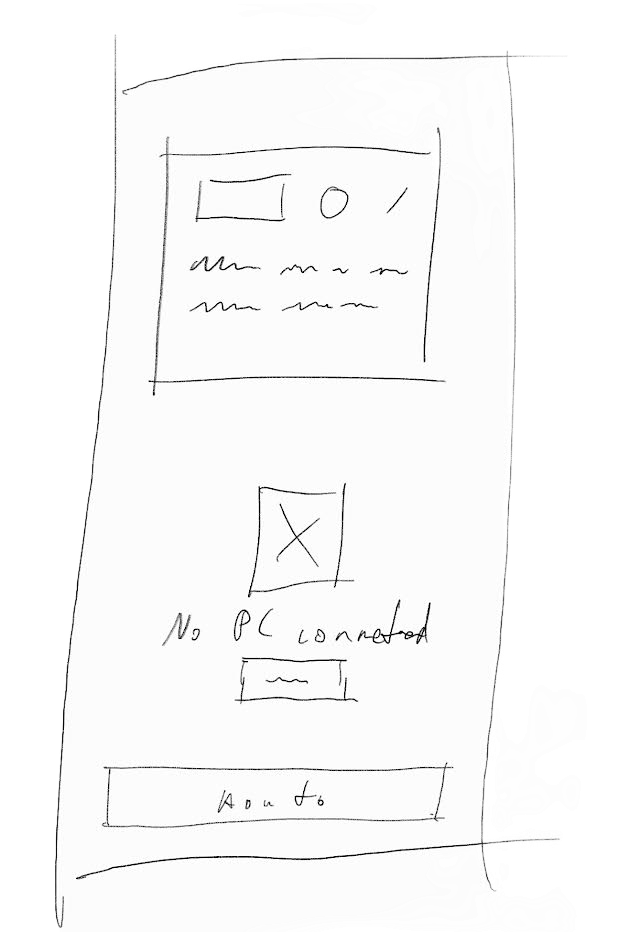 No PC connected
How to